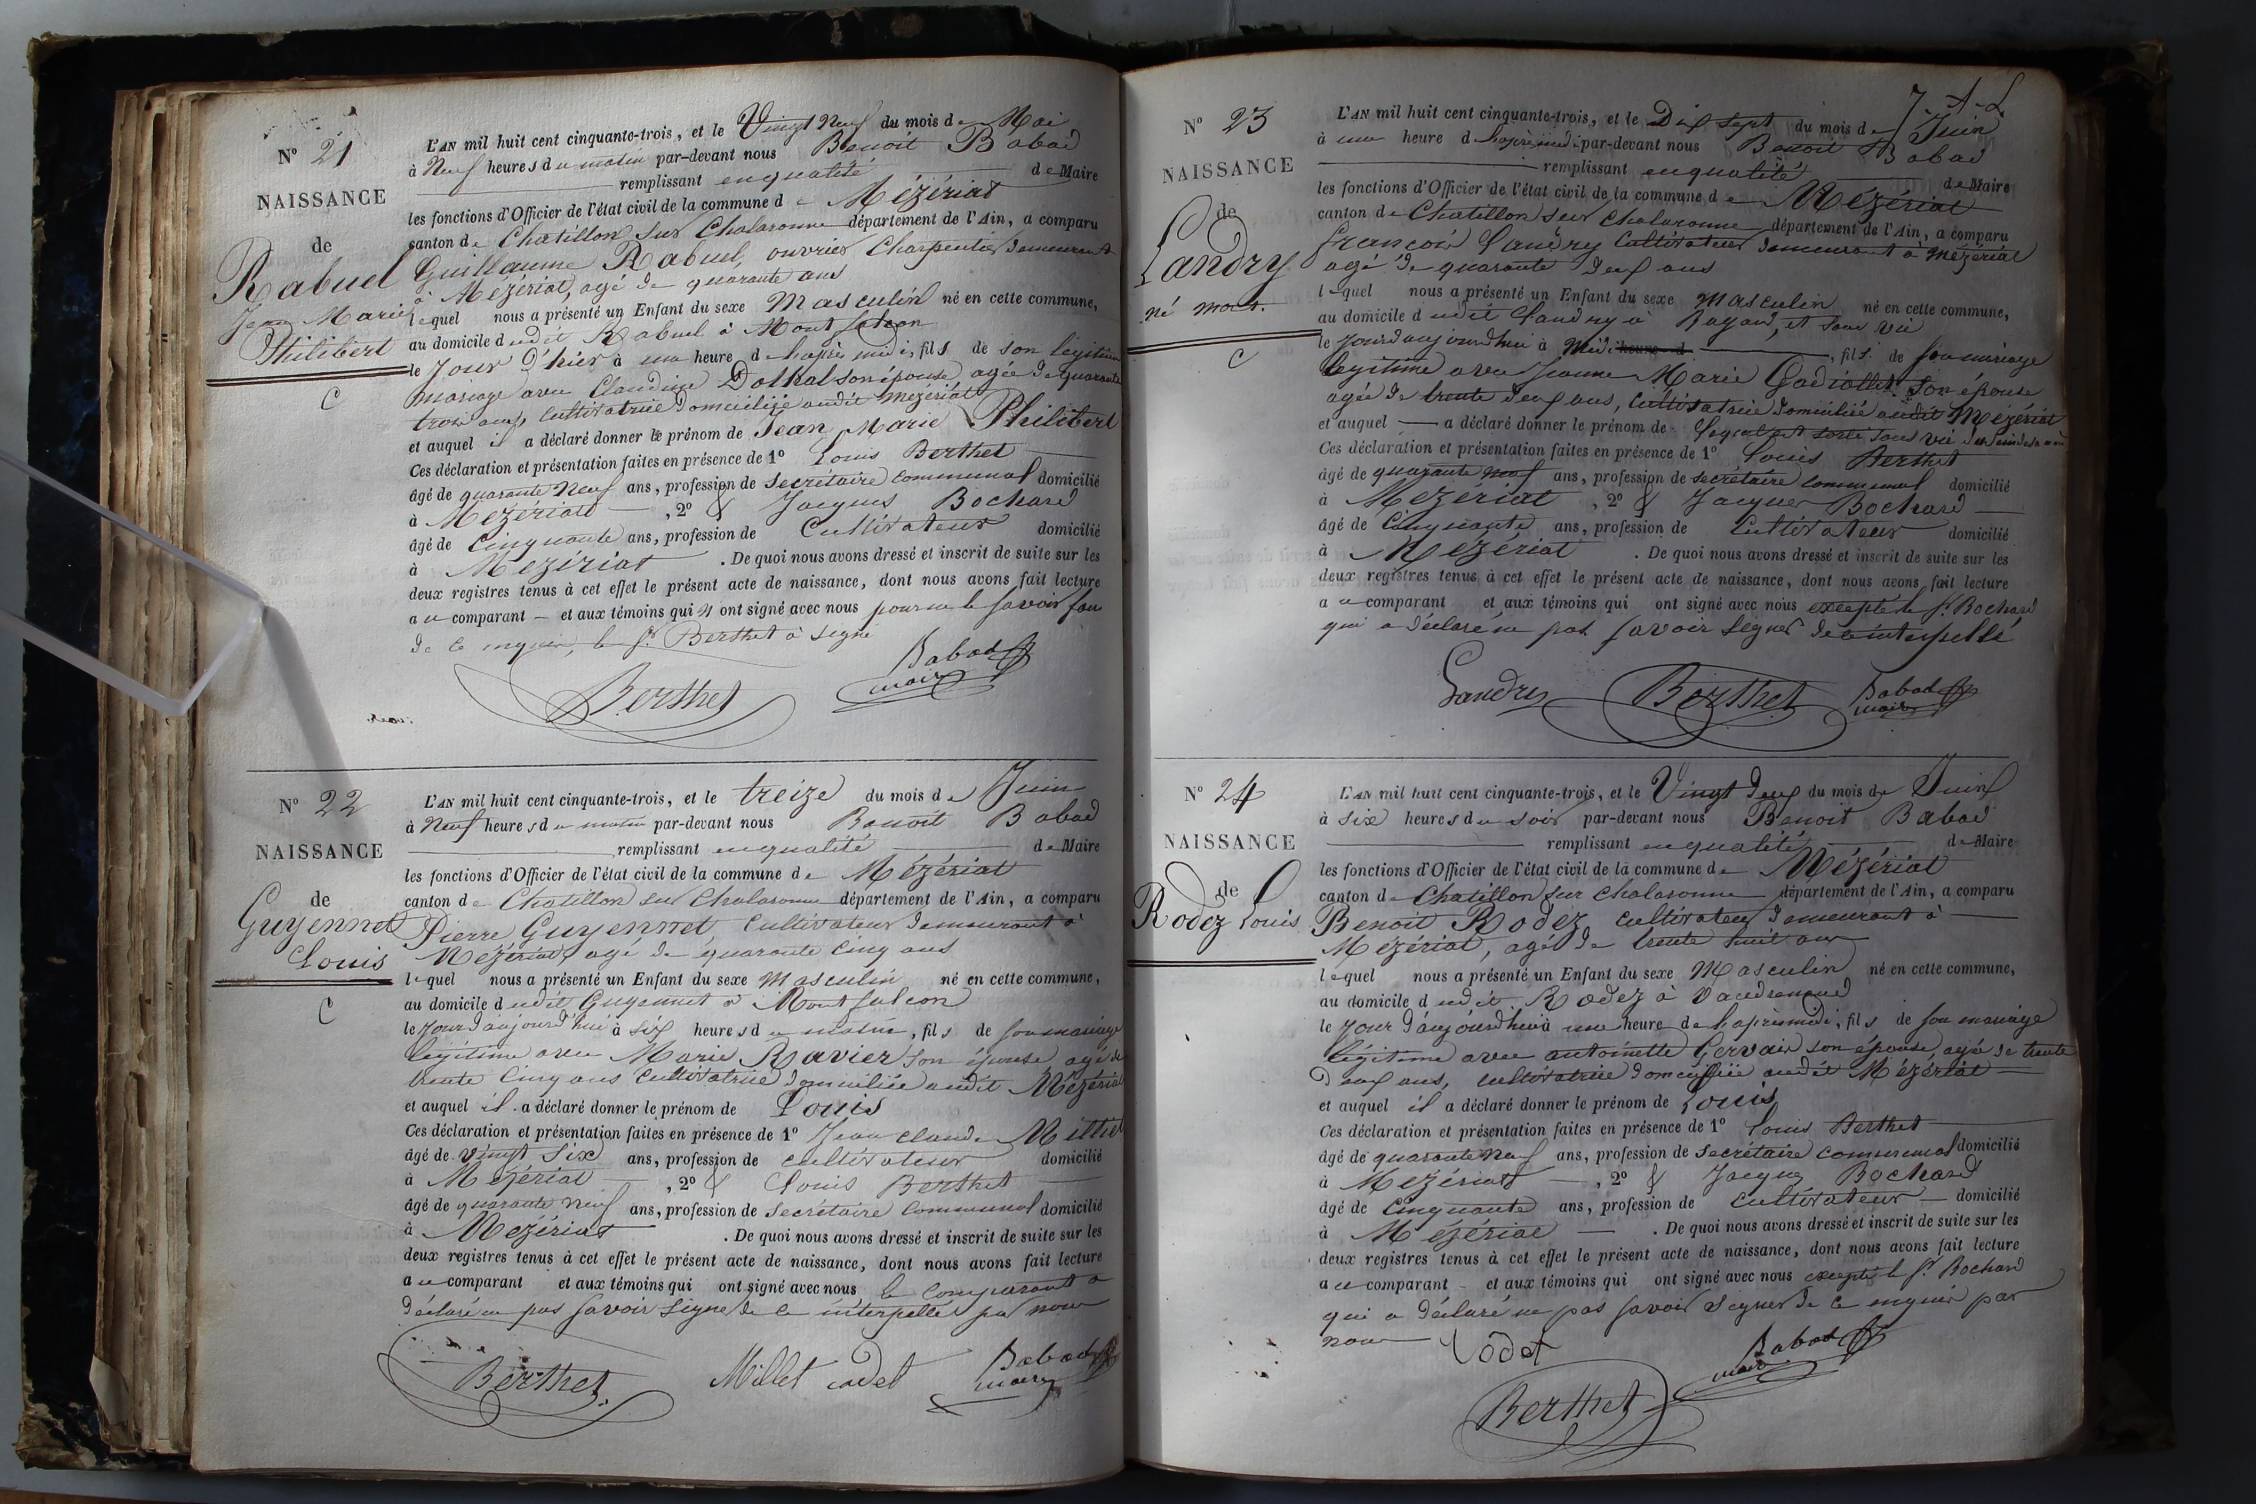 Nº 21
NAISSANCE
de
Rabuel
Jean Marie
Philibert
C
L'AN mil huit cent cinquante-trois, et le Vingt Neuf du mois de Mai
à Neuf heures du matin par-devant nous Benoit Babad
remplissant en qualité de Maire
les fonctions d'Officier de l'état civil de la commune de Mézériat
canton de Chatillon sur Chalaronne département de l'Ain, a comparu
Guillaume Rabuel, ouvrier Charpentier demeurant
à Mézériat, agé de quarante ans
lequel nous a présenté un Enfant du sexe Masculin né en cette commune,
au domicile dudit Rabuel à Mont falcon
le Jour d'hier à une heure de l'après midi, fils de son légitime
mariage avec Claudine son épouse agée de quarante
trois ans, cultivatrice domiciliée audit mézériat
et auquel il a déclaré donner le prénom de Jean Marie Philibert
Ces déclaration et présentation faites en présence de 1º Louis Berthet
âgé de quarante Neuf ans, profession de Secrétaire communal domicilié
à Mézériat , 2º & Jacques Bochard
âgé de Cinquante ans, profession de Cultivateur domicilié
à Mézériat . De quoi nous avons dressé et inscrit de suite sur les
deux registres tenus à cet effet le présent acte de naissance, dont nous avons fait lecture
au comparant et aux témoins qui n ont signé avec nous pour ne le savoir faire
de ce enquis, le Sr Berthet à signé
Berthet
Babad
maire
Nº 22
NAISSANCE
de
Guyennet
Louis
C
L'AN mil huit cent cinquante-trois, et le treize du mois de Juin
à Neuf heures du matin par-devant nous Benoit Babad
remplissant en qualité de Maire
les fonctions d'Officier de l'état civil de la commune de Mézériat
canton de Chatillon sur Chalaronne département de l'Ain, a comparu
Pierre Guyennet Cultivateur demeurant à
Mézériat, agé de quarante cinq ans
lequel nous a présenté un Enfant du sexe Masculin né en cette commune,
au domicile dudit Guyennet à Mont falcon
le Jour d'aujourd'hui à six heures du matin, fils de son mariage
légitime avec Marie Ravier son épouse agée de
trente Cinq ans Cultivatrice domiciliée audit Mézériat
et auquel il a déclaré donner le prénom de Louis
Ces déclaration et présentation faites en présence de 1º Jean claude Milliet
âgé de vingt Six ans, profession de cultivateur domicilié
à Mézériat , 2º & Louis Berthet
âgé de quarante neuf ans, profession de Secrétaire Communal domicilié
à Mézériat . De quoi nous avons dressé et inscrit de suite sur les
deux registres tenus à cet effet le présent acte de naissance, dont nous avons fait lecture
au comparant et aux témoins qui ont signé avec nous le comparant a
déclaré ne pas savoir signer de ce interpellé par nous
Berthet
Millet cadet
Babad
maire
Nº 23
NAISSANCE
de
Landry
né mort.
C
L'AN mil huit cent cinquante-trois, et le Dix Sept du mois de Juin
à une heure de l'après midi par-devant nous Benoit Babad
remplissant en qualité de Maire
les fonctions d'Officier de l'état civil de la commune de Mézériat
canton de Chatillon sur Chalaronne département de l'Ain, a comparu
françois Landry Cultivateur demeurant à Mézériat
agé de quarante deux ans
lequel nous a présenté un Enfant du sexe Masculin né en cette commune,
au domicile dudit Landry à et sans vie
le Jour d'aujourd'hui à Midi heure d , fils de son mariage
légitime avec Jeanne Marie son épouse
agée de trente deux ans, Cultivatrice domiciliée audit Mézériat
et auquel a déclaré donner le prénom de Lequel est sorti sans vie
Ces déclaration et présentation faites en présence de 1º Louis Berthet
âgé de quarante neuf ans, profession de secrétaire communal domicilié
à Mézériat , 2º & Jacques Bochard
âgé de Cinquante ans, profession de Cultivateur domicilié
à Mézériat . De quoi nous avons dressé et inscrit de suite sur les
deux registres tenus à cet effet le présent acte de naissance, dont nous avons fait lecture
au comparant et aux témoins qui ont signé avec nous excepté le Sr Bochard
qui a déclaré ne pas savoir signer de ce interpellé
Landry
Berthet
Babad
maire
Nº 24
NAISSANCE
de
Rodez Louis
L'AN mil huit cent cinquante-trois, et le Vingt deux du mois de Juin
à six heures du soir par-devant nous Benoit Babad
remplissant en qualité de Maire
les fonctions d'Officier de l'état civil de la commune de Mézériat
canton de Chatillon sur Chalaronne département de l'Ain, a comparu
Benoit Rodez cultivateur demeurant à
Mézériat, agé de trente huit ans
lequel nous a présenté un Enfant du sexe Masculin né en cette commune,
au domicile dudit Rodez à
le Jour d'aujourd'hui à une heure de l'après midi, fils de son mariage
légitime avec antoinette Gervais son épouse, agée de trente
deux ans, cultivatrice domiciliée audit Mézériat
et auquel il a déclaré donner le prénom de Louis
Ces déclaration et présentation faites en présence de 1º Louis Berthet
âgé de quarante neuf ans, profession de Secrétaire communal domicilié
à Mézériat , 2º & Jacques Bochard
âgé de Cinquante ans, profession de Cultivateur domicilié
à Mézériat . De quoi nous avons dressé et inscrit de suite sur les
deux registres tenus à cet effet le présent acte de naissance, dont nous avons fait lecture
au comparant et aux témoins qui ont signé avec nous excepté le Sr Bochard
qui a déclaré ne pas savoir signer de ce enquis par
nous
Babad
maire
Berthet